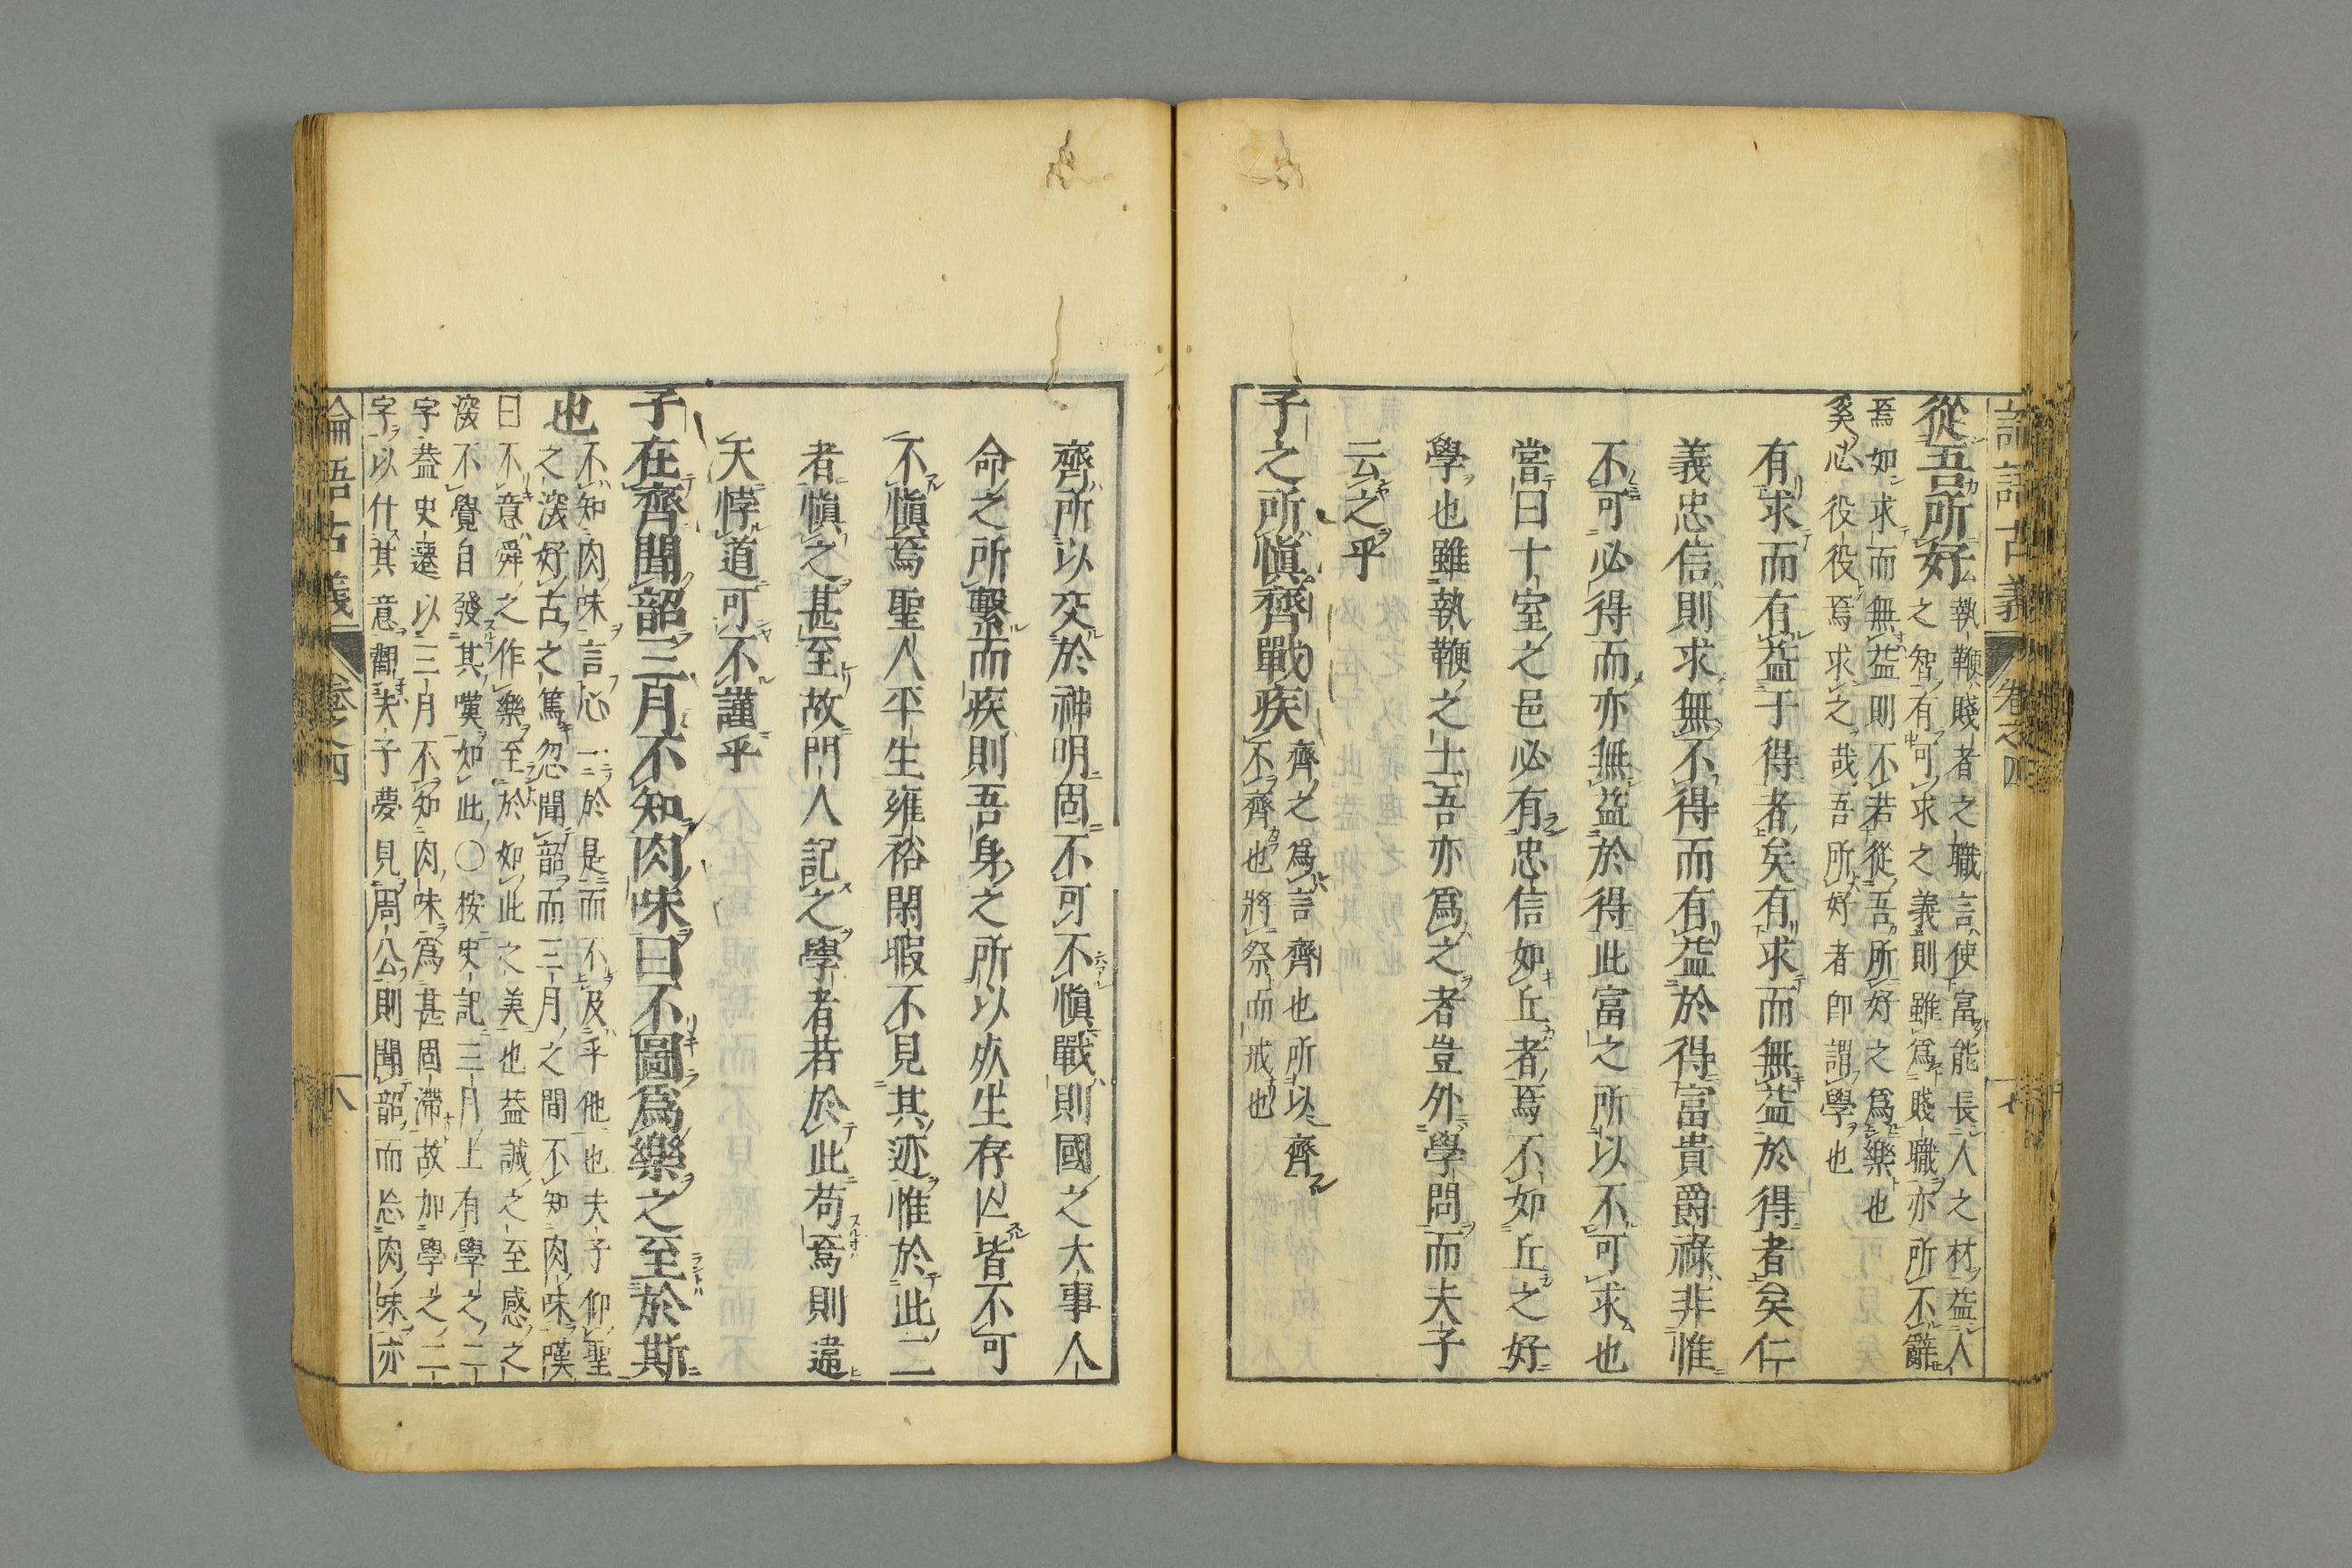 論語古義 卷之四
從吾所好 執鞭賤者之職言使富能長人之材益人
之智有可求之義則雖爲賤職亦所不辭
焉如求而無益則不若從吾所好之爲樂也
奚必役役焉求之哉吾所好者卽謂學也
有求而有益于得者矣有求而無益於得者矣仁
義忠信則求無不得而有益於得富貴爵祿非惟
不可必得而亦無益於得此富之所以不可求也
嘗曰十室之邑必有忠信如丘者焉不如丘之好
學也雖執鞭之士吾亦爲之者豈外學問而夫子
云之乎
子之所愼齊戰疾 齊之爲言齊也所以齊
不齊也將祭而戒也
齊所以交於神明固不可不愼戰則國之大事人
命之所繫而疾則吾身之所以死生存亡皆不可
不愼焉聖人平生雍裕閑暇不見其迹惟於此二
者愼之甚至故門人記之學者若於此苟焉則違
天悖道可不謹乎
子在齊聞韶三月不知肉味曰不圖爲樂之至於斯
也 不知肉味言心一於是而不及乎他也夫子仰聖
之深好古之篤忽聞韶而三月之間不知肉味嘆
曰不意舜之作樂至於如此之美也益誠之至感之
深不覺自發其嘆如此〇按史記三月上有學之二
字葢史遷以三月不知肉味爲甚固滯故加學之二
字以什其意觀夫子夢見周公則聞韶而忘肉味亦
論語古義 卷之四 八